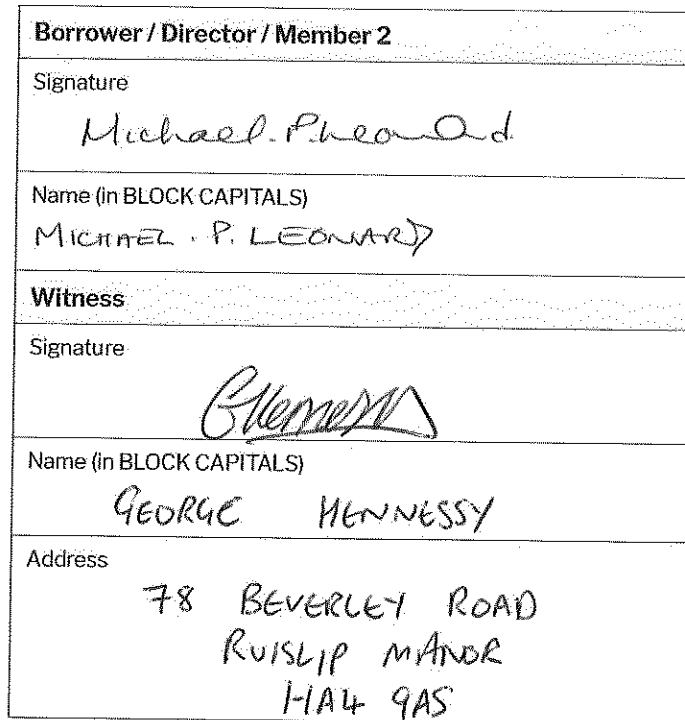 Borrower / Director / Member 2
Signature
Michael. P. Leonard.
Name (in BLOCK CAPITALS)
MICHAEL . P. LEONARD
Witness
Signature
GHennessy
Name (in BLOCK CAPITALS)
GEORGE HENNESSY
Address
78 BEVERLEY ROAD
RUISLIP MANOR
HA4 9AS